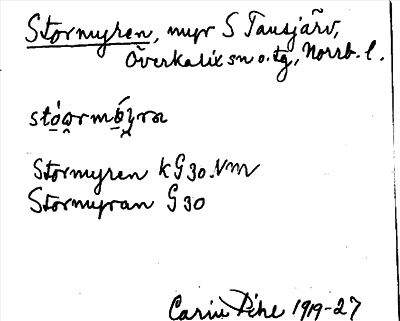 Stormyren, myr S Tansjärv,
Överkalix sn o. tg, Norrb. l.
Stormyren kG30.NM
Stormyran G30
Carin Pihl 1919-27